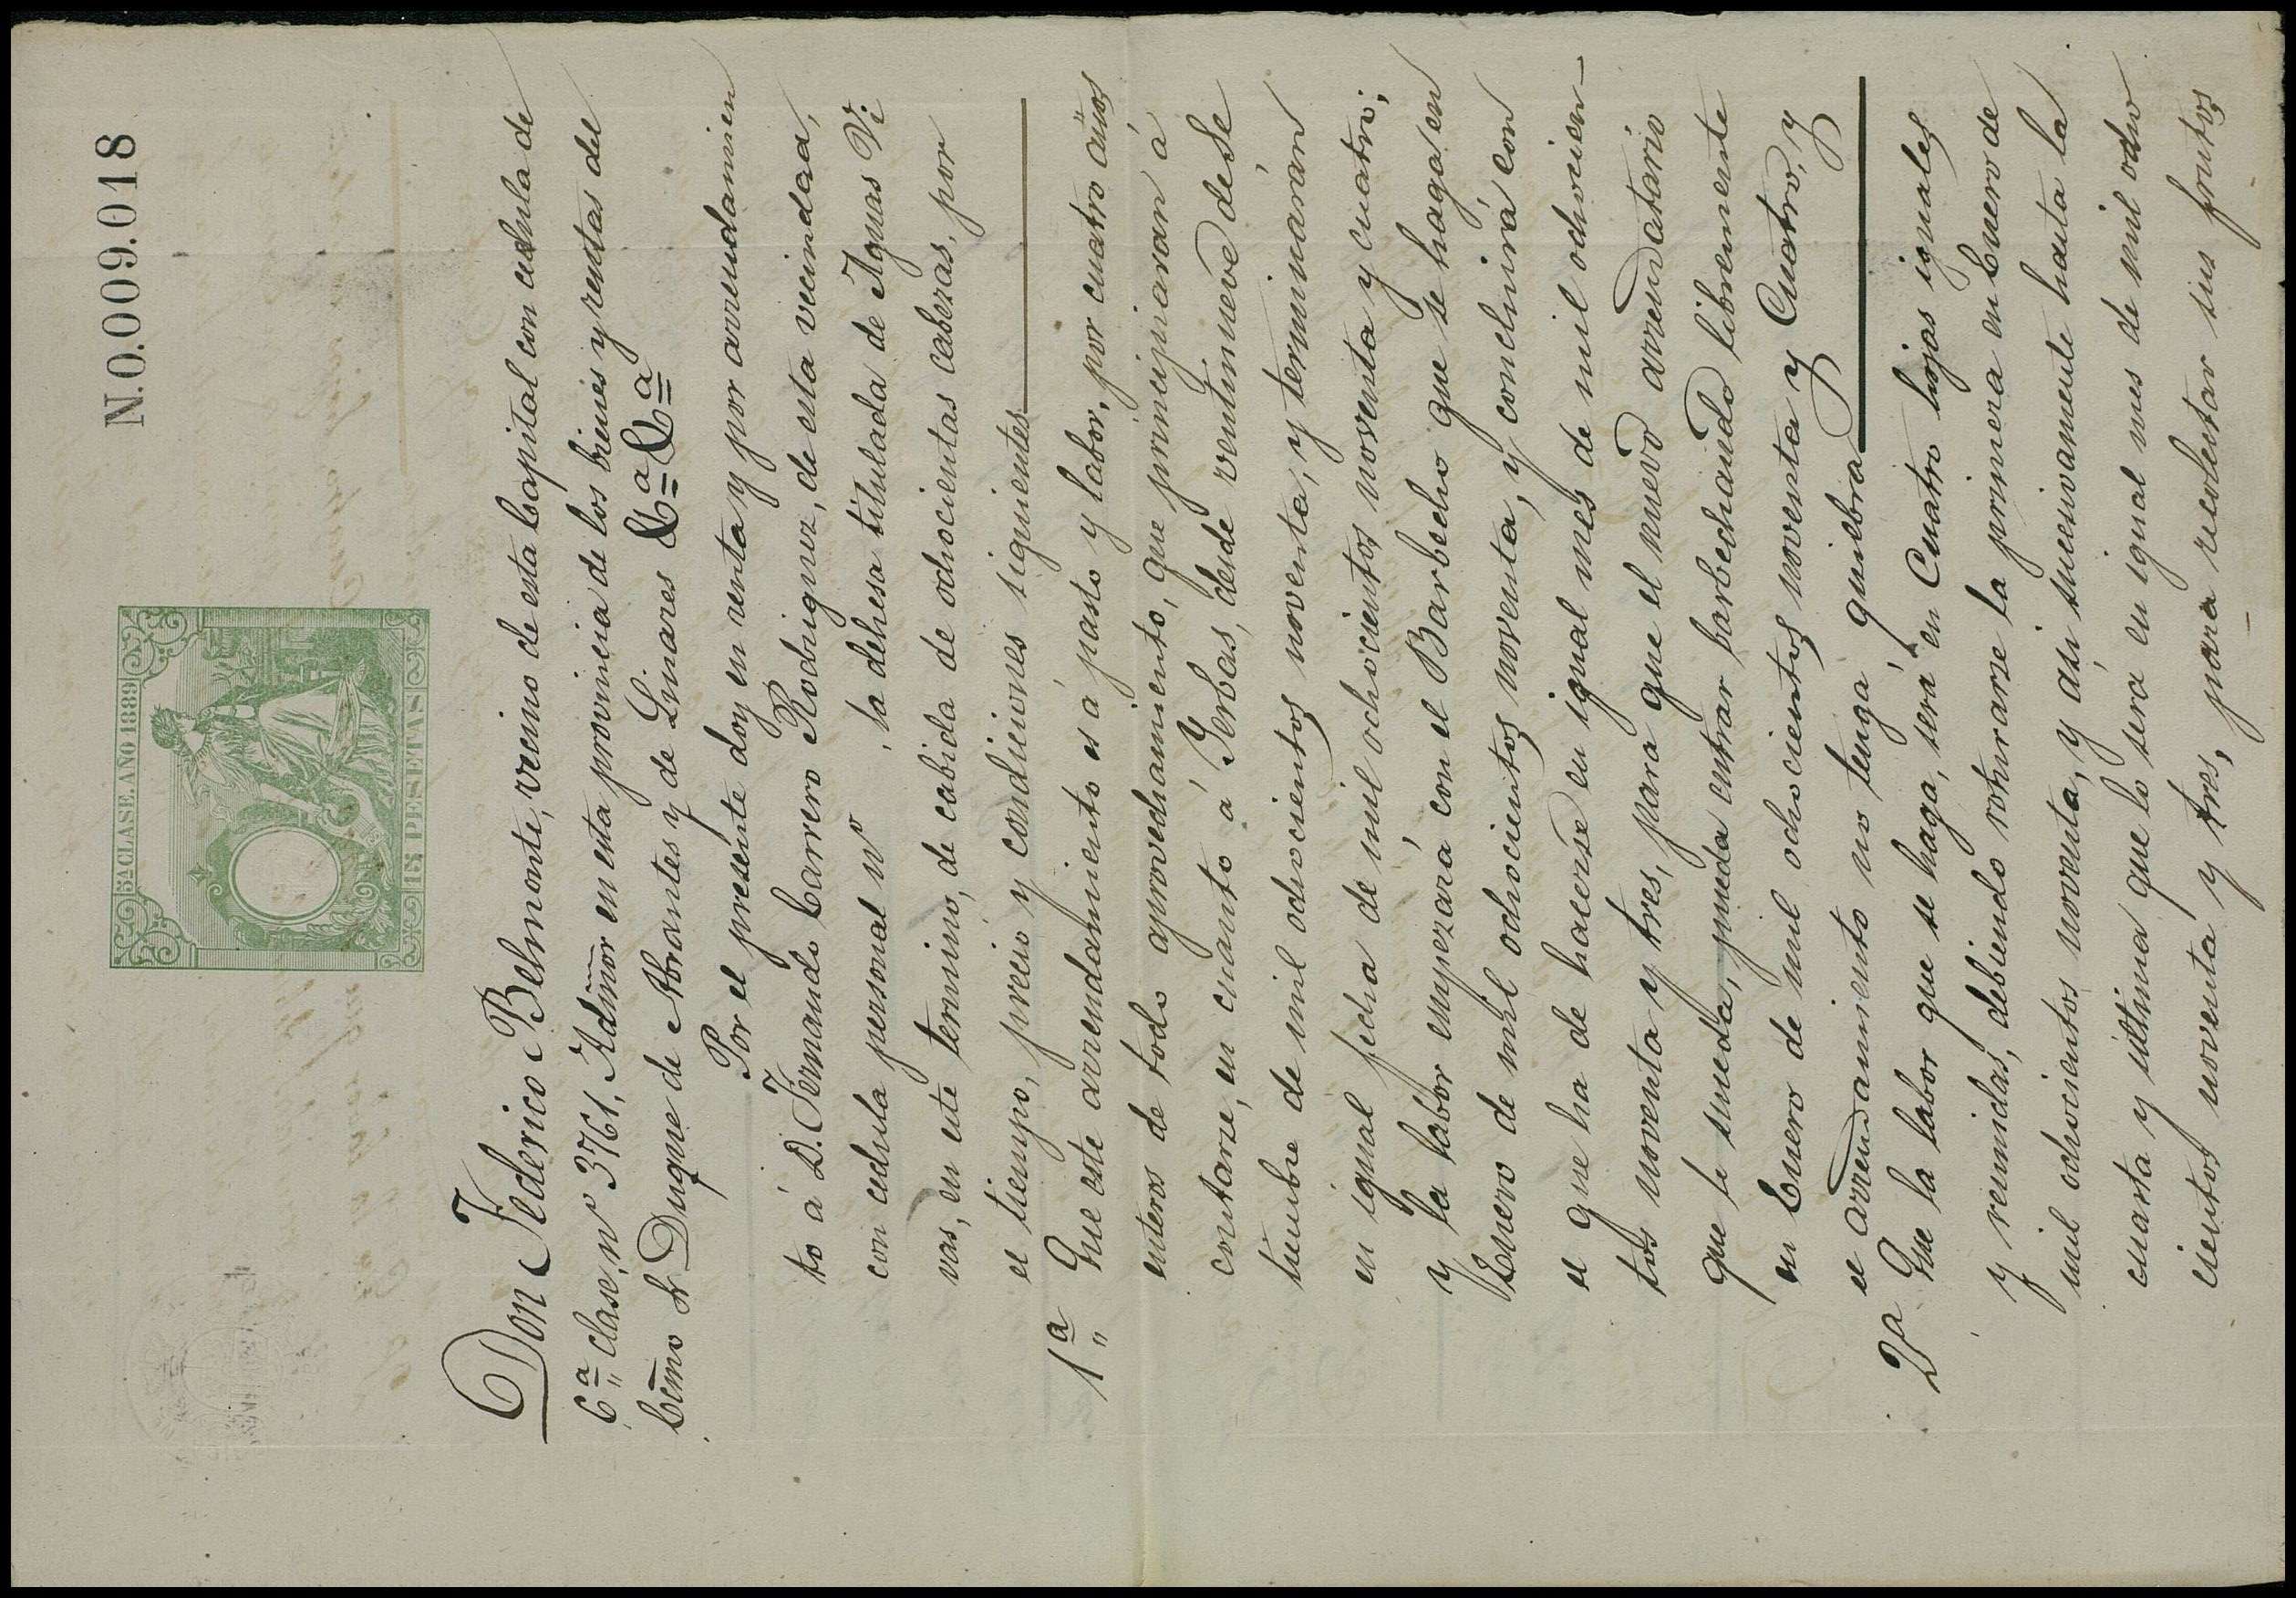 N.0.009.018
5ª CLASE. AÑO 1889
15 PESETAS
Don Federico Belmonte, vecino de esta Capital con cedula de
6ª clase, nº 3761, Admor en esta provincia de los bienes y rentas del
Ecmo Sr Duque de Abrantes y de Linares Eª Eª
Por el presente doy en renta y por arrendamien
to á D. Fernando Carrero Rodriguez, de esta vecindad,
con cedula personal nº , la dehesa titulada de Aguas Vi
vas, en este termino, de cabida de ochocientas cabezas, por
el tiempo, precio y condiciones siguientes
1ª Que este arrendamiento es á pasto y labor, por cuatro años
enteros de todo aprovechamiento, que principiaran á
contarse, en cuanto á Yerbas, desde veintinueve de Se
tiembre de mil ochocientos noventa, y terminarán
en igual fecha de mil ochocientos noventa y cuatro;
y la labor empezará con el Barbecho que se haga en
Enero de mil ochocientos noventa, y concluirá con
el que ha de hacerse en igual mes de mil ochocien-
tos noventa y tres, para que el nuevo arrendatario
que le suceda, pueda entrar barbechando libremente
en Enero de mil ochocientos noventa y Cuatro, y
el arrendamiento no tenga quiebra
2ª Que la labor que se haga, será en Cuatro hojas iguales
y reunidas, debiendo roturarse la primera en Enero de
mil ochocientos noventa, y ási sucesivamente hasta la
cuarta y ultima que lo será en igual mes de mil ocho
cientos noventa y tres, para recolectar sus frutos